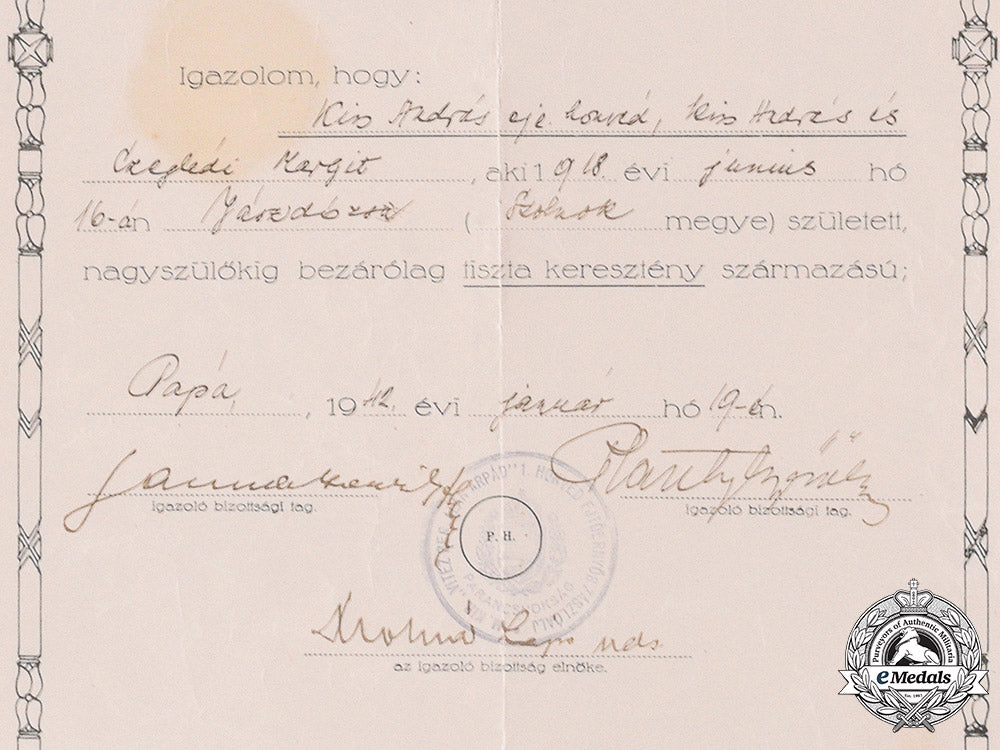 Igazolom, hogy:
Kiss András eje. honvéd, Kiss András és
Czeglédi Margit, aki 1918. évi június hó
16-án Jászdózsa (Szolnok megye) született,
nagyszülőkig bezárólag tiszta keresztény származású;
Pápa, 1942. évi január hó 19-én.
igazoló bizottsági tag.
igazoló bizottsági tag.
P. H.
PARANCSNOKSÁG
az igazoló bizottság elnöke.
Purveyors of Authentic Militaria
eMedals